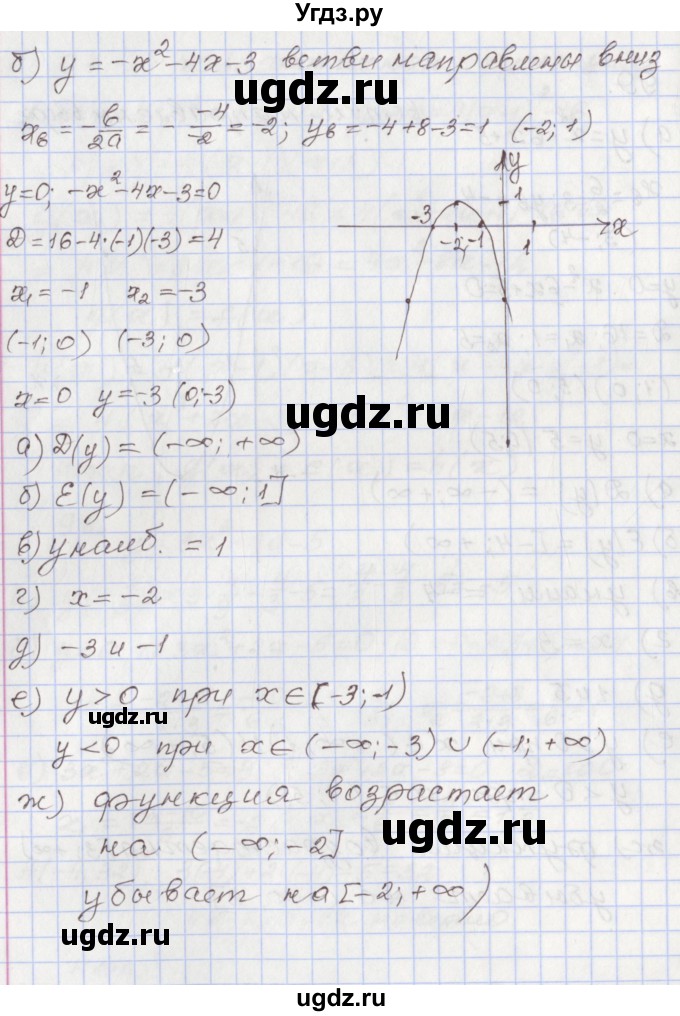 Угдз.ру
б) y = -x² - 4x - 3 ветви направлены вниз
ugdz.ru
x₆ = -b/2a = - -4/-2 = -2; y₆ = -4+8-3=1 (-2; 1)
y=0; -x²-4x-3=0
D=16-4·(-1)(-3)=4
x₁ = -1 x₂ = -3
(-1; 0) (-3; 0)
y
1
-3
-2
-1
1
x
x=0 y=-3 (0;-3)
ugdz.ru
а) D(y) = (-∞; +∞)
б) E(y) = (-∞; 1]
в) y наиб. = 1
г) x = -2
д) -3 и -1
е) y > 0 при x ∈ (-3; -1)
ugdz.ru
y < 0 при x ∈ (-∞; -3) ∪ (-1; +∞)
ж) функция возрастает
на (-∞; -2]
ugdz.ru
убывает на [-2; +∞)
ugdz.ru
ugdz.ru